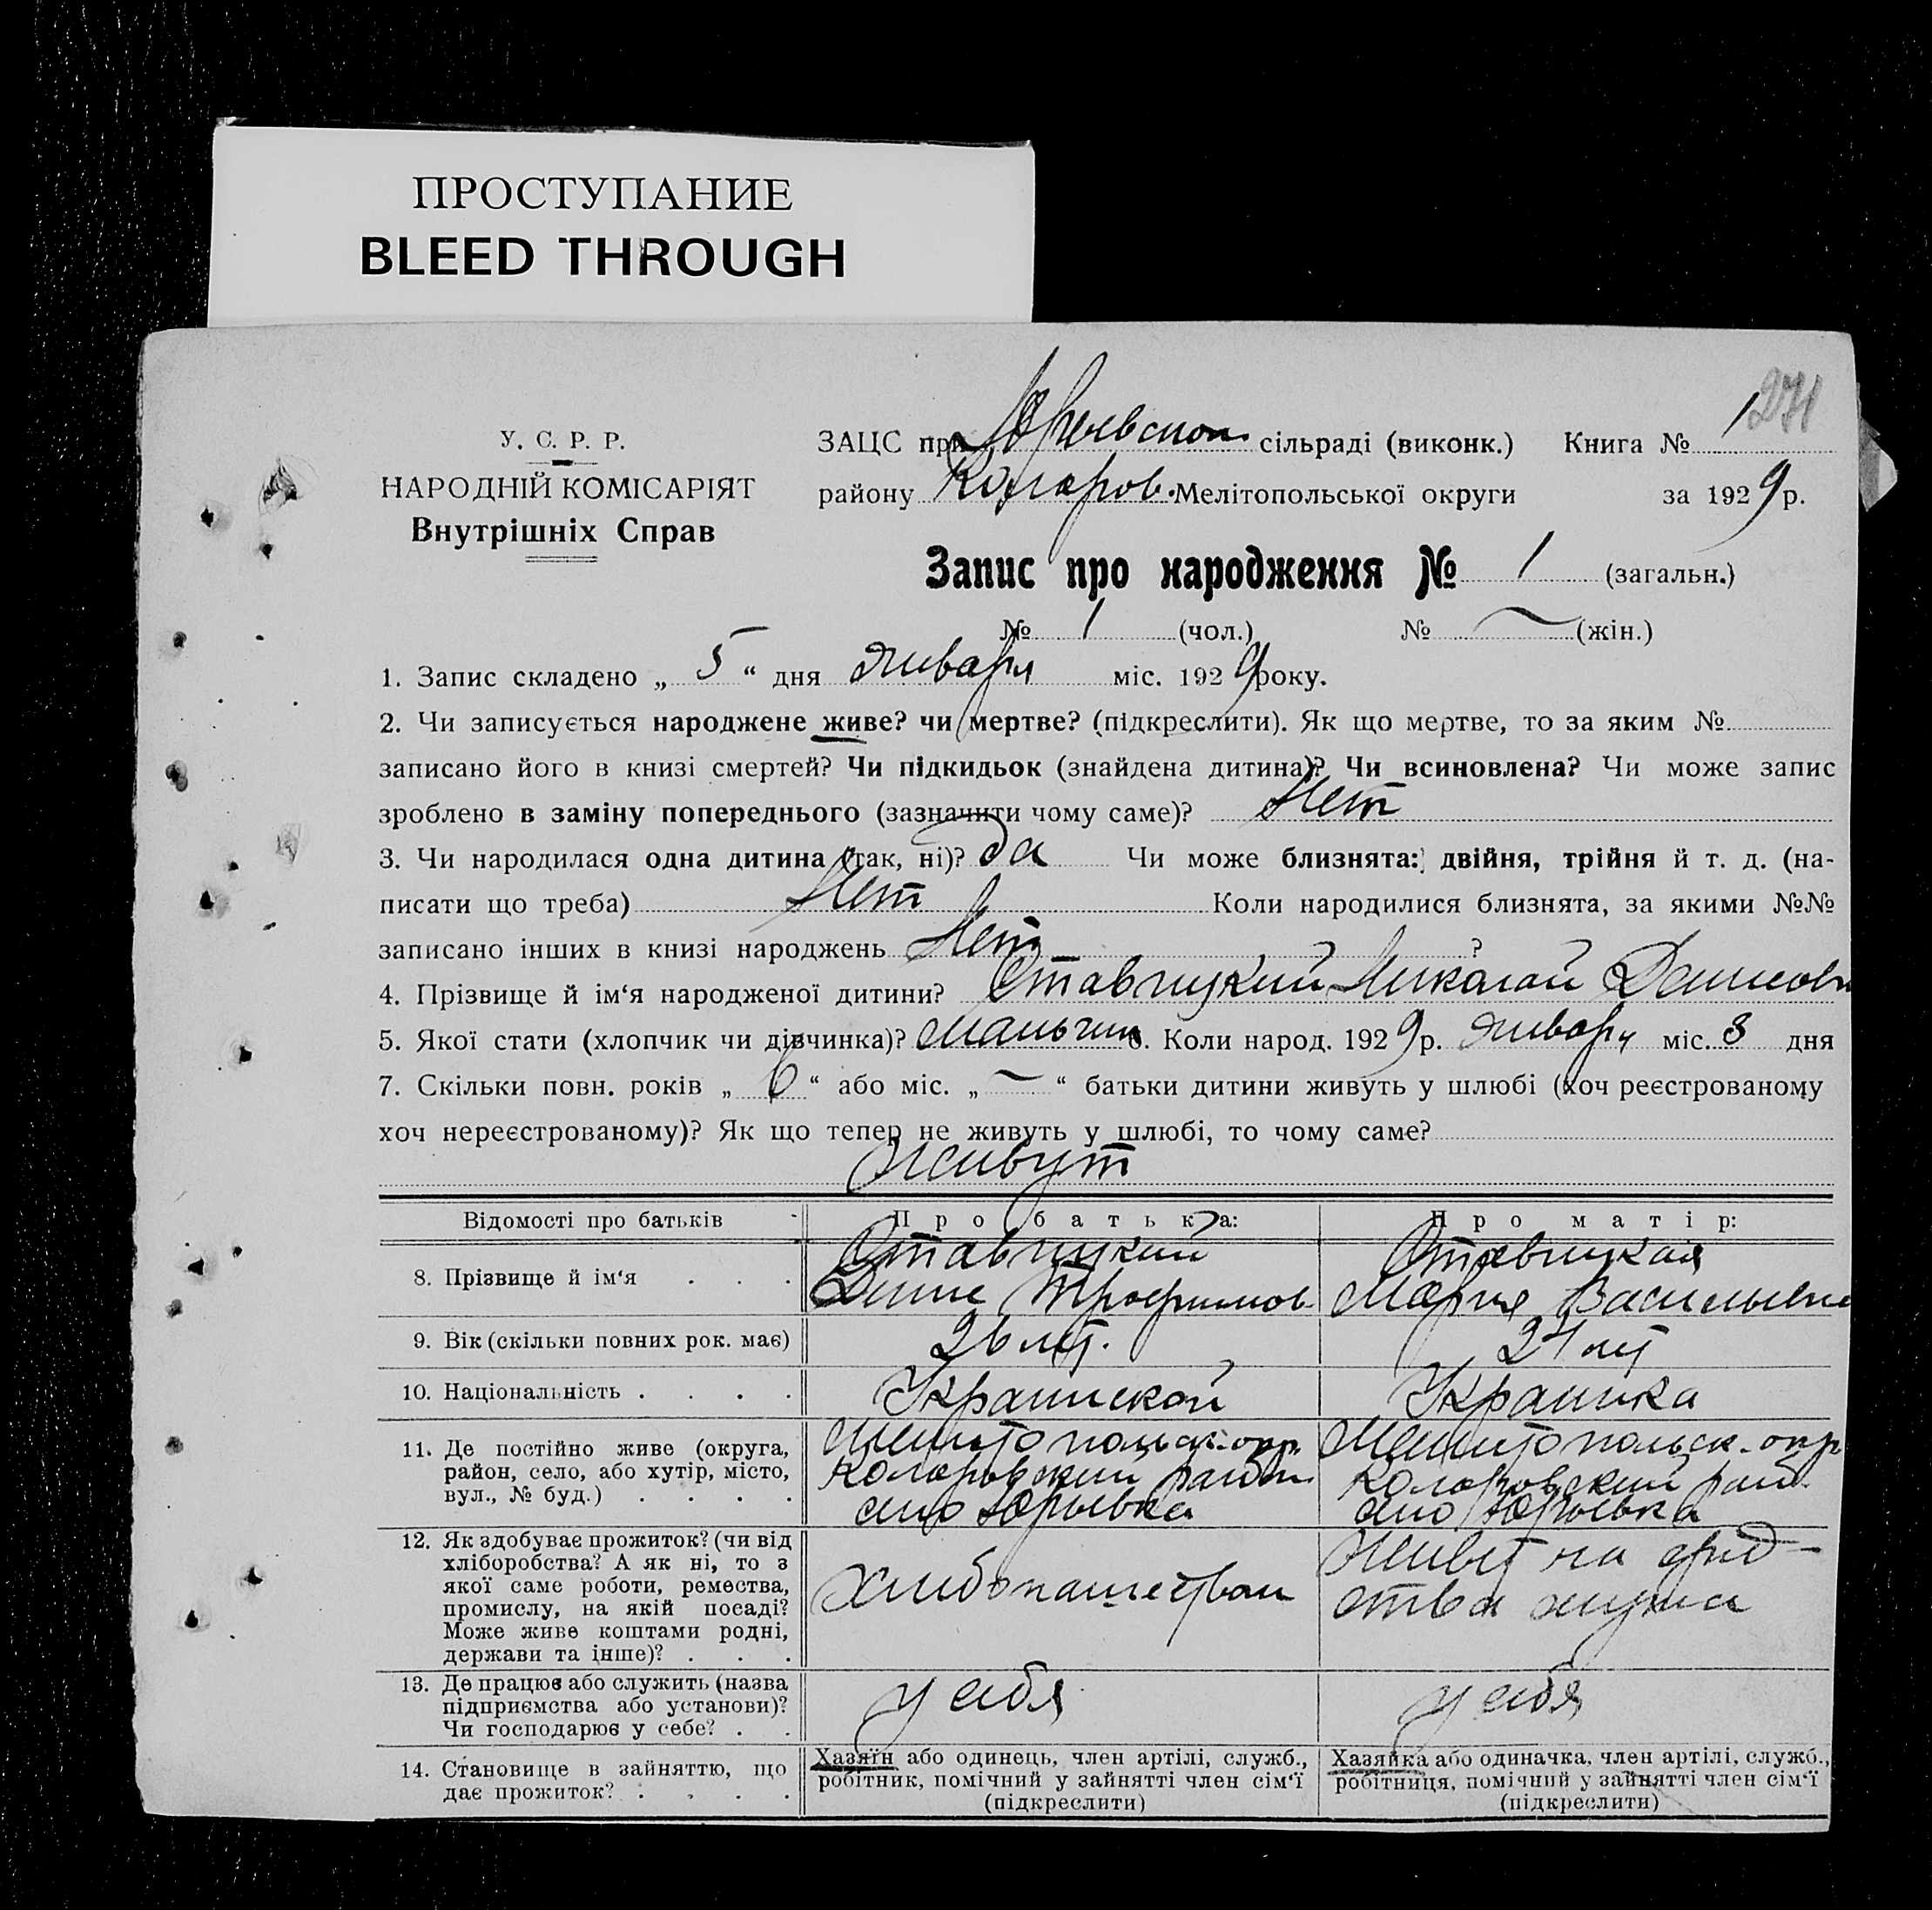 ПРОСТУПАНИЕ
BLEED THROUGH
271
У. С. Р. Р.
НАРОДНІЙ КОМІСАРІЯТ
Внутрішніх Справ
ЗАЦС при Юрьевском сільраді (виконк.) Книга № 1
району Коларов. Мелітопольської округи за 1929 р.
Запис про народження № 1 (загальн.)
№ 1 (чол.) № — (жін.)
1. Запис складено „ 5 “ дня января міс. 1929 року.
2. Чи записується народжене живе? чи мертве? (підкреслити). Як що мертве, то за яким №
записано його в книзі смертей? Чи підкидьок (знайдена дитина)? Чи всиновлена? Чи може запис
зроблено в заміну попереднього (зазначити чому саме)? Нет
3. Чи народилася одна дитина (так, ні)? Да Чи може близнята: двійня, трійня й т. д. (на-
писати що треба) Нет Коли народилися близнята, за якими №№
записано інших в книзі народжень Нет ?
4. Прізвище й ім‘я народженої дитини? Ставицкий Николай
5. Якої стати (хлопчик чи дівчинка)? Мальчик 6. Коли народ. 1929 р. январ міс. 3 дня
7. Скільки повн. років „ 6 “ або міс. „ — “ батьки дитини живуть у шлюбі (хоч реєстрованому
хоч нереєстрованому)? Як що тепер не живуть у шлюбі, то чому саме?
Живут
Відомості про батьків Про батька: Про матір:
8. Прізвище й ім‘я . . . Ставицкий Ставицкая
Трофимов Мария Васильевна
9. Вік (скільки повних рок. має) 26 лет. лет
10. Національність . . . . Украинской Украинка
11. Де постійно живе (округа, Мелитопольск. окр. Мелитопольск. окр
район, село, або хутір, місто, Коларовский район Коларовский рай.
вул., № буд.) . . . . село Юрьевка село Юрьевка
12. Як здобуває прожиток? (чи від
хліборобства? А як ні, то з
якої саме роботи, ремества,
промислу, на якій посаді?
Може живе коштами родні,
держави та інше)? . . .
Хлебопашеством
Живет на сред-
ства мужа
13. Де працює або служить (назва
підприємства або установи)?
Чи господарює у себе? . .
у себя у себя
14. Становище в зайняттю, що
дає прожиток? . . . .
Хазяїн або одинець, член артілі, служб.,
робітник, помічний у зайнятті член сім‘ї
(підкреслити)
Хазяйка або одиначка, член артілі, служб.,
робітниця, помічний у зайнятті член сім‘ї
(підкреслити)